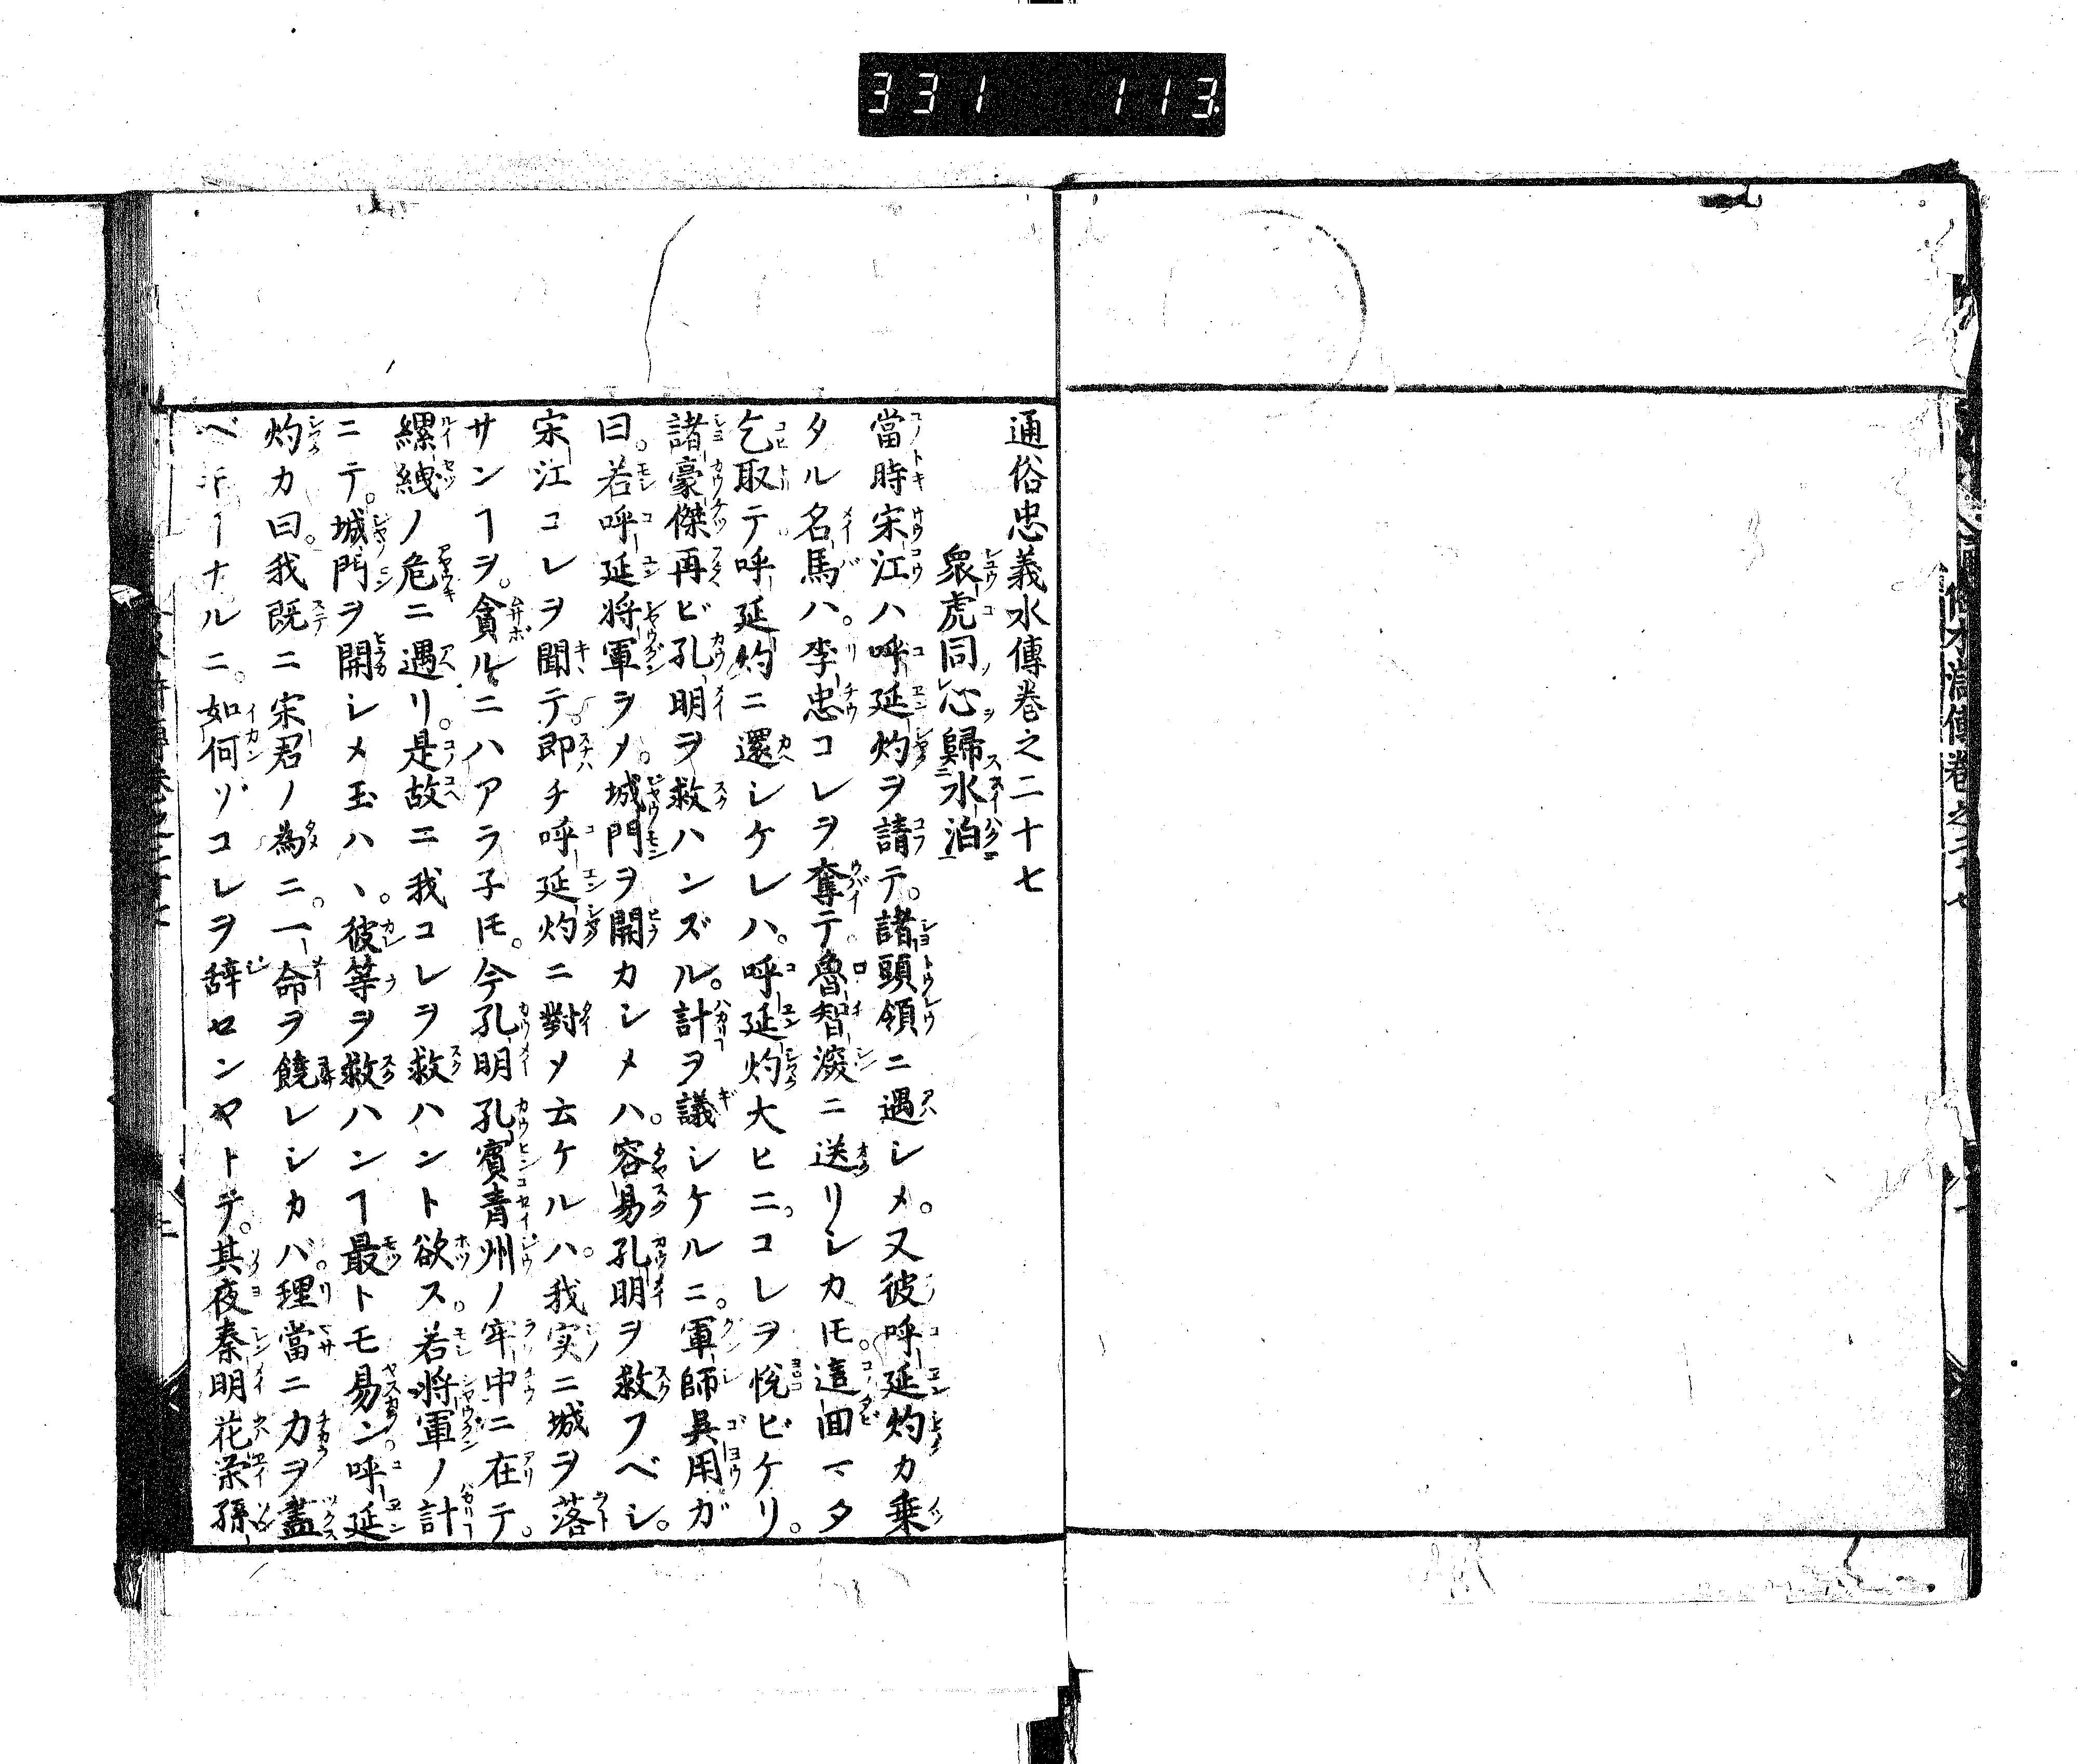 331 113
通俗忠義水傳巻之二十七
衆虎同心歸水泊
當時宋江ハ呼延灼ヲ請テ。諸頭領ニ遇シメ。又彼呼延灼カ乗
タル名馬ハ。李忠コレヲ奪テ魯智深ニ送リシカ𪜈。這回マタ
乞取テ呼延灼ニ還シケレハ。呼延灼大ヒニコレヲ悅ビケリ。
諸豪傑再ビ孔明ヲ救ハンズル。計ヲ議シケルニ。軍師吳用ガ
曰。若呼延将軍ヲ〆。城門ヲ開カシメハ。容易孔明ヲ救フベシ。
宋江コレヲ聞テ。即チ呼延灼ニ對〆云ケルハ。我実ニ城ヲ落
サンヿヲ。貪ルニハアラ子𪜈。今孔明孔賓青州ノ牢中ニ在テ。
縲絏ノ危ニ遇リ。是故ニ我コレヲ救ハント欲ス。若将軍ノ計
ニテ。城門ヲ開シメ玉ハヽ。彼等ヲ救ハンヿ最トモ易ン。呼延
灼カ曰。我既ニ宋君ノ為ニ。一命ヲ饒レシカバ。理當ニ力ヲ盡
ベキヿナルニ。如何ゾコレヲ辞センヤトテ。其夜秦明花栄孫